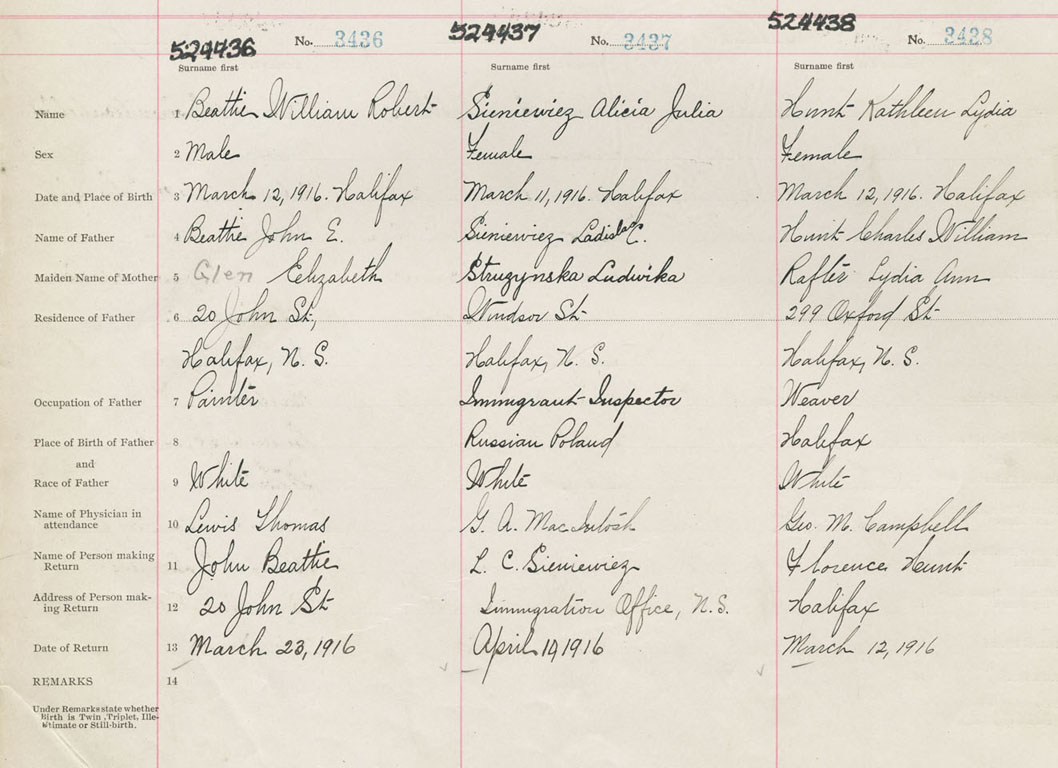 524436 No. 3436 524437 No. 3437 524438 No. 3438
Surname first Surname first Surname first
Name 1 Beattie William Robert Sieniewiez Alicia Julia Hunt Kathleen Lydia
Sex 2 Male Female Female
Date and Place of Birth 3 March 12, 1916. Halifax March 11, 1916. Halifax March 12, 1916. Halifax
Name of Father 4 Beattie John E. Sieniewiez Ladislas C. Hunt Charles William
Maiden Name of Mother 5 Glen Elizabeth Struzynska Ludwika Rafter Lydia Ann
Residence of Father 6 20 John St., Windsor St 299 Oxford St
Halifax, N. S. Halifax, N. S. Halifax, N. S.
Occupation of Father 7 Painter Immigrant Inspector Weaver
Place of Birth of Father 8 Russian Poland Halifax
and
Race of Father 9 White White White
Name of Physician in
attendance 10 Lewis Thomas G. A. MacIntosh Geo. M. Campbell
Name of Person making
Return 11 John Beattie L. C. Sieniewiez Florence Hunt
Address of Person mak-
ing Return 12 20 John St Immigration Office, N.S. Halifax
Date of Return 13 March 23, 1916 April 1916 March 12, 1916
REMARKS 14
Under Remarks state whether
Birth is Twin, Triplet, Ille-
gitimate or Still-birth.